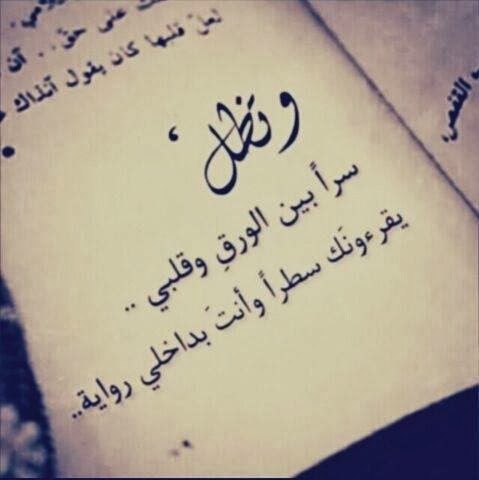 على حقّ ..
لعلّ قلبها كان يقول آنذاك
القفص،
وتظل ،
سراً بين الورقِ وقلبي ..
يقرءونَك سطراً وأنتَ بداخلي رواية..